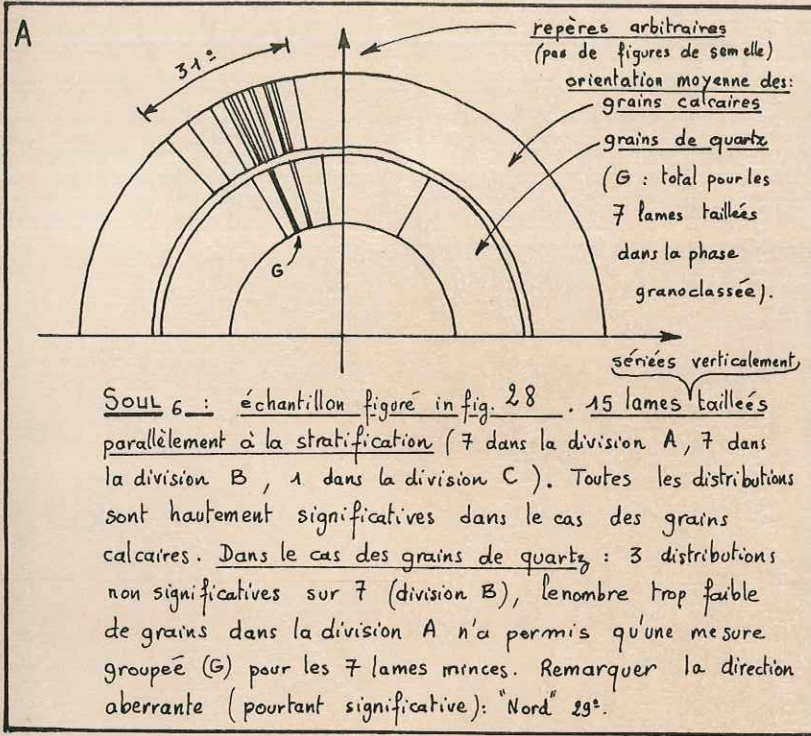 A
31°
repères arbitraires
(pas de figures de semelle)
orientation moyenne des:
grains calcaires
grains de quartz
(G : total pour les
7 lames taillées
dans la phase
granoclassée).
G
sériées verticalement
SOUL 6 : échantillon figuré in fig. 28 . 15 lames tailleés
parallèlement à la stratification (7 dans la division A, 7 dans
la division B , 1 dans la division C ). Toutes les distributions
sont hautement significatives dans le cas des grains
calcaires. Dans le cas des grains de quartz : 3 distributions
non significatives sur 7 (division B), le nombre trop faible
de grains dans la division A n'a permis qu'une mesure
groupeé (G) pour les 7 lames minces. Remarquer la direction
aberrante (pourtant significative): "Nord" 29°.